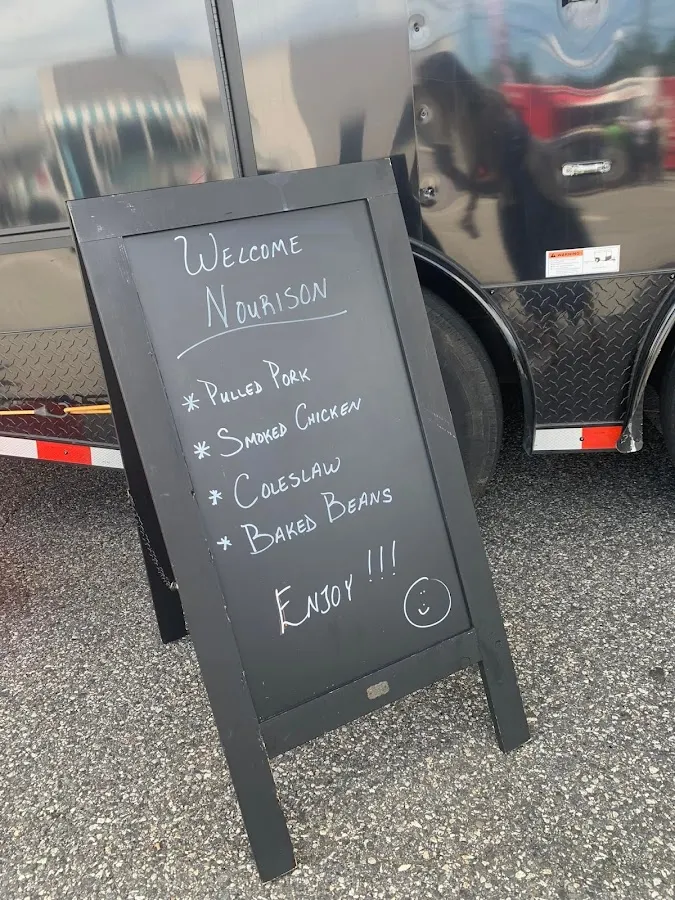 WELCOME
NOURISON
* PULLED PORK
* SMOKED CHICKEN
* COLESLAW
* BAKED BEANS
ENJOY !!!